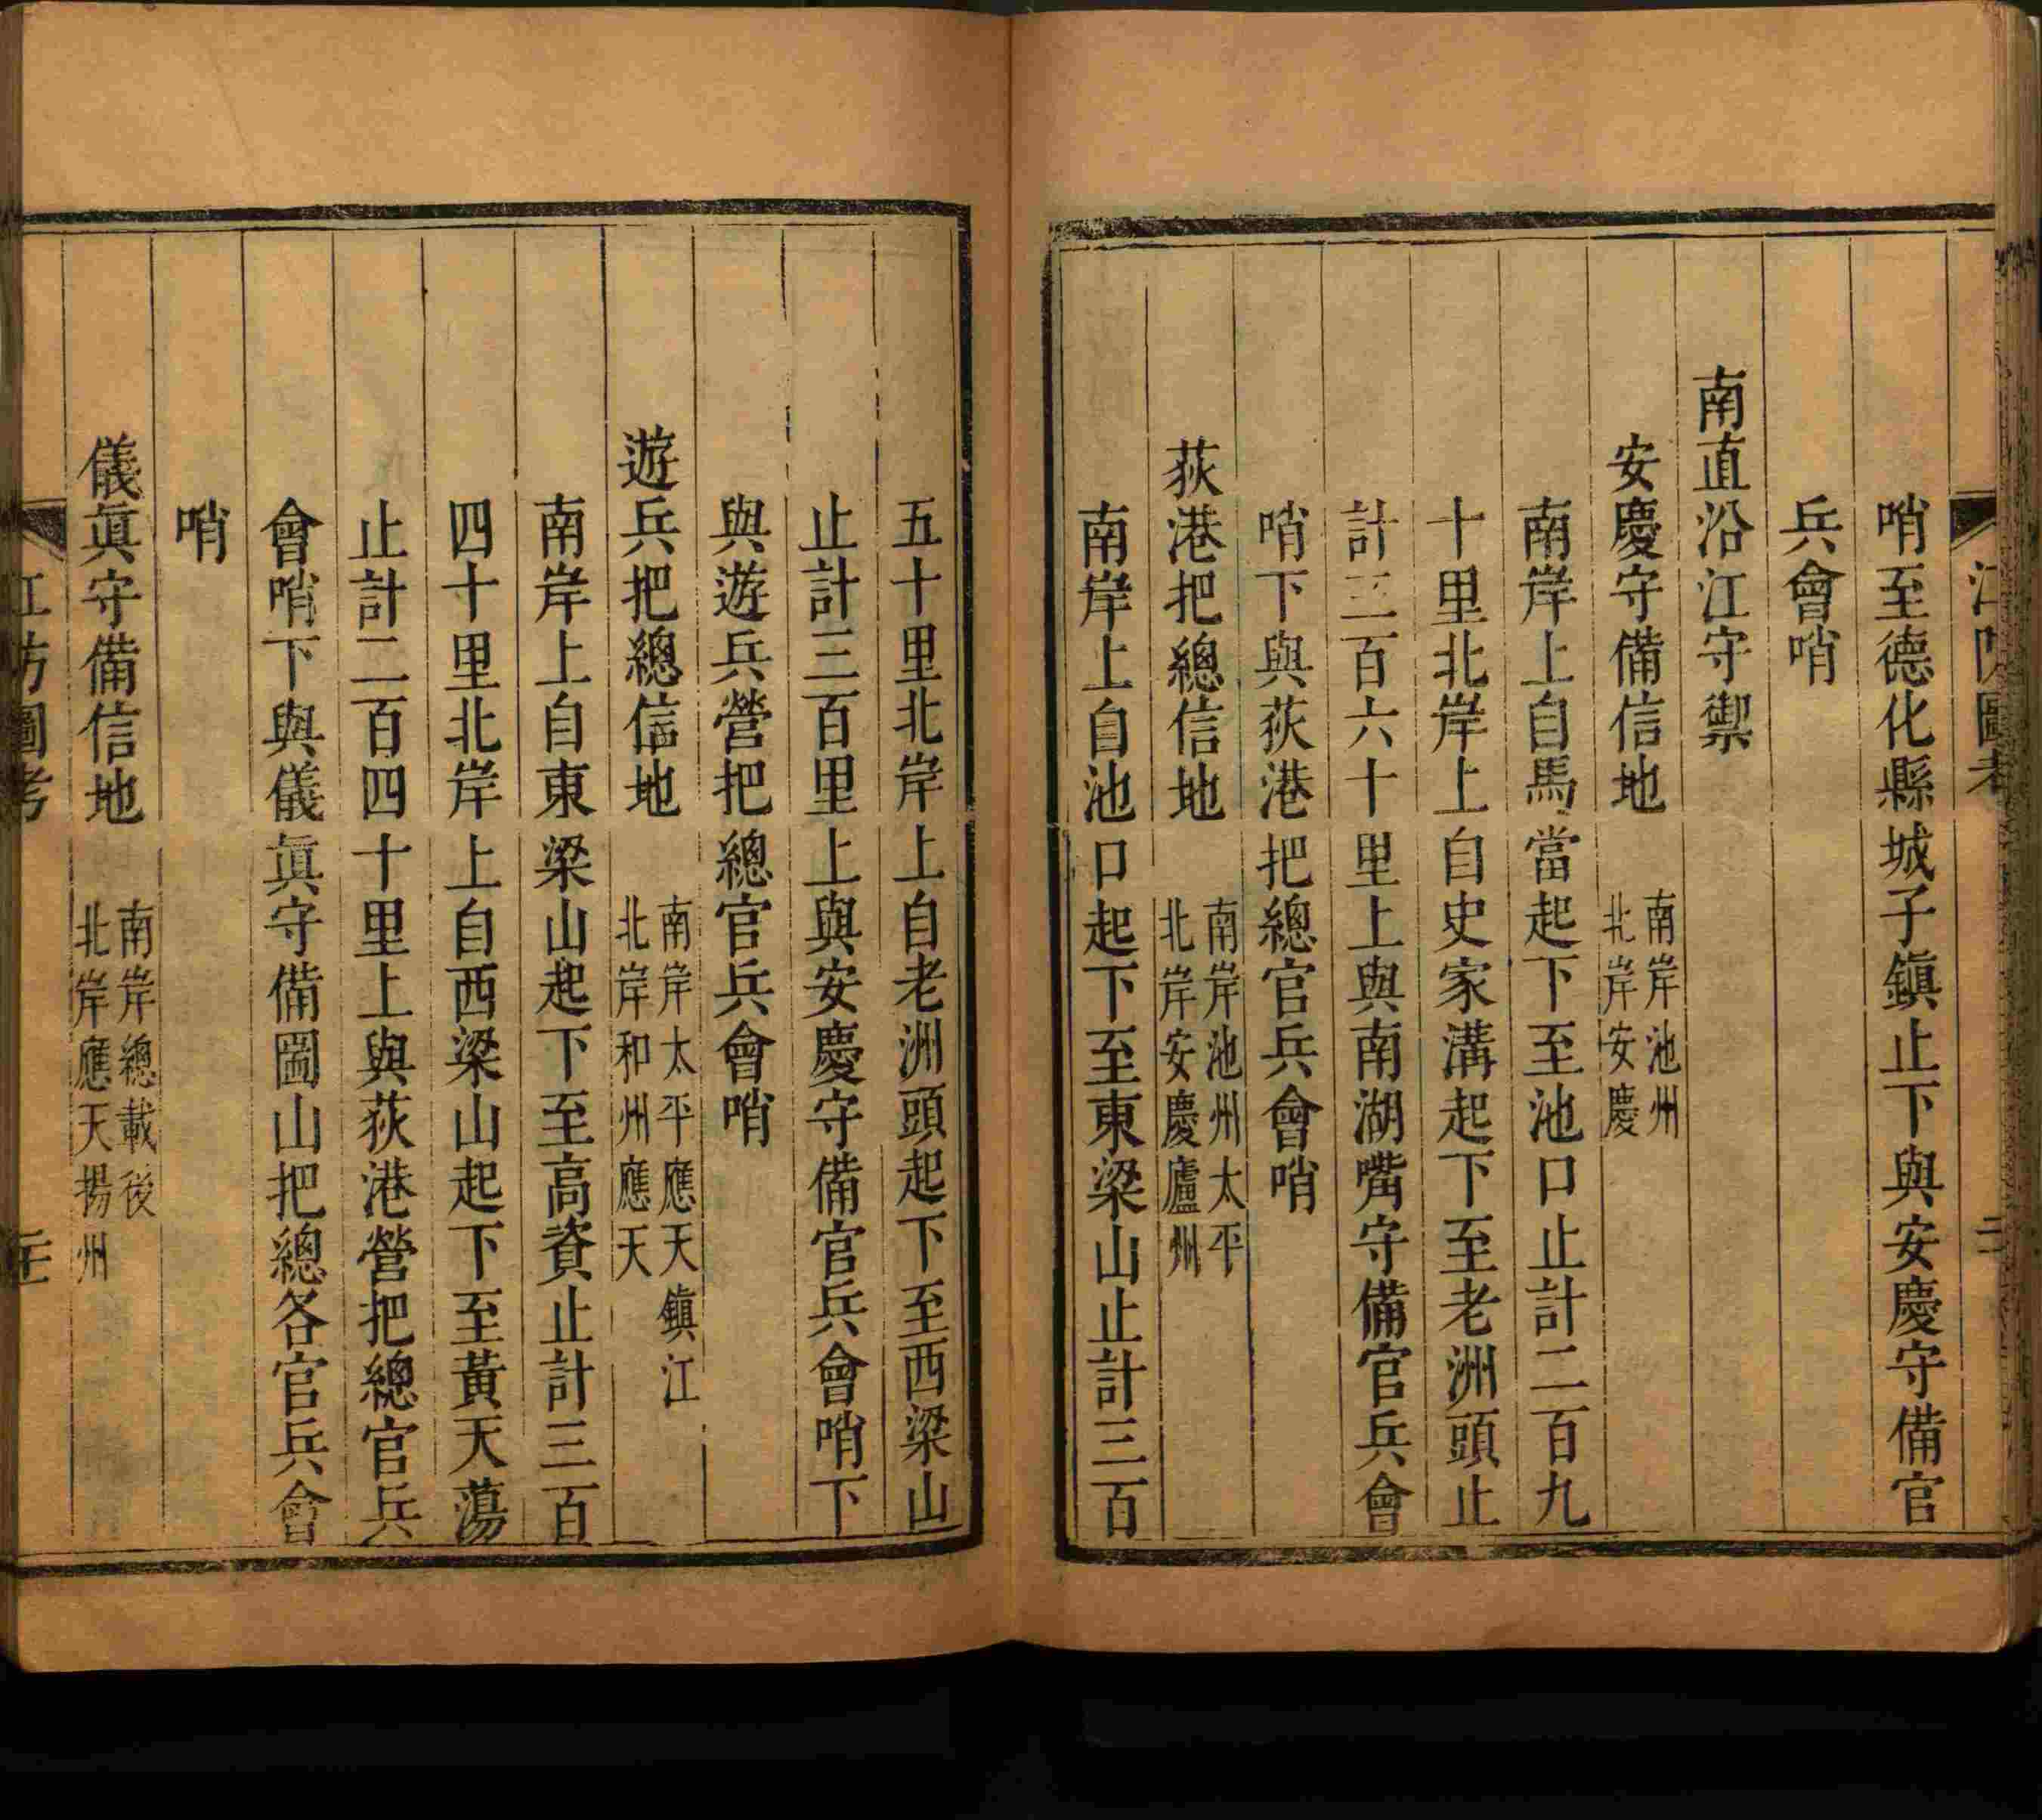 江防圖考
二
哨至德化縣城子鎮止下與安慶守備官
兵會哨
南直沿江守禦
安慶守備信地 南岸池州 北岸安慶
南岸上自馬當起下至池口止計二百九
十里北岸上自史家溝起下至老洲頭止
計三百六十里上與南湖嘴守備官兵會
哨下與荻港把總官兵會哨
荻港把總信地 南岸池州太平 北岸安慶廬州
南岸上自池口起下至東梁山止計三百
五十里北岸上自老洲頭起下至西梁山
止計三百里上與安慶守備官兵會哨下
與遊兵營把總官兵會哨
遊兵把總信地 南岸太平應天鎮江 北岸和州應天
南岸上自東梁山起下至高資止計三百
四十里北岸上自西梁山起下至黃天蕩
止計二百四十里上與荻港營把總官兵
會哨下與儀眞守備圌山把總各官兵會
哨
儀眞守備信地 南岸總載後 北岸應天揚州
江防圖考